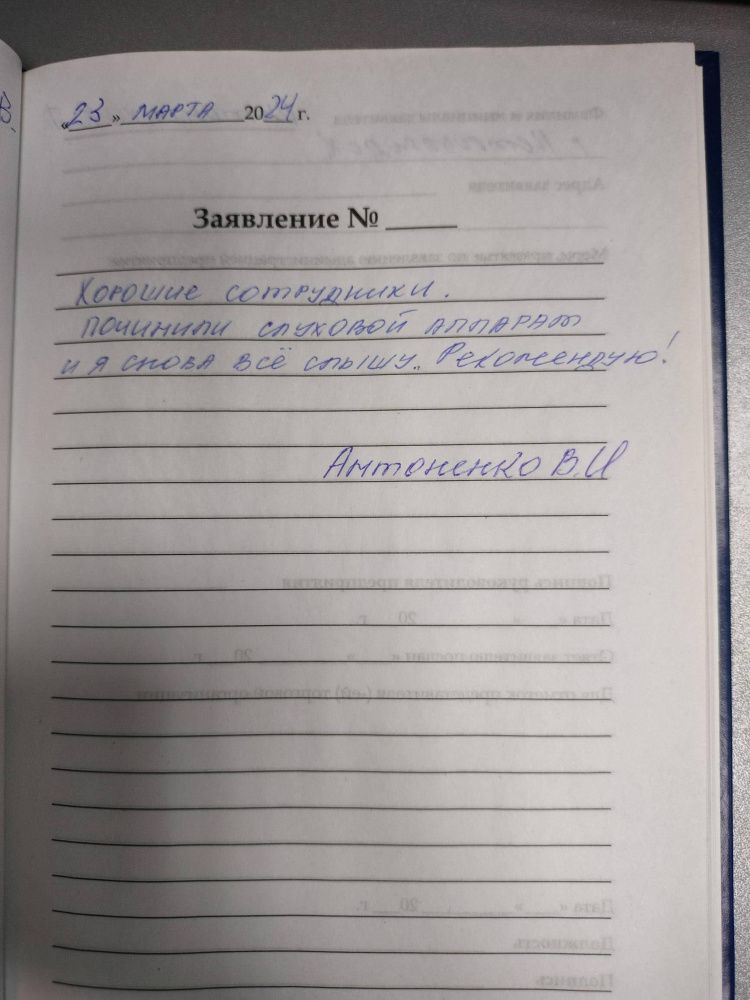 «23» марта 2024 г.
Заявление № ______
Хорошие сотрудники.
починили слуховой аппарат
и я снова всё слышу. Рекомендую!
Антоненко В.И